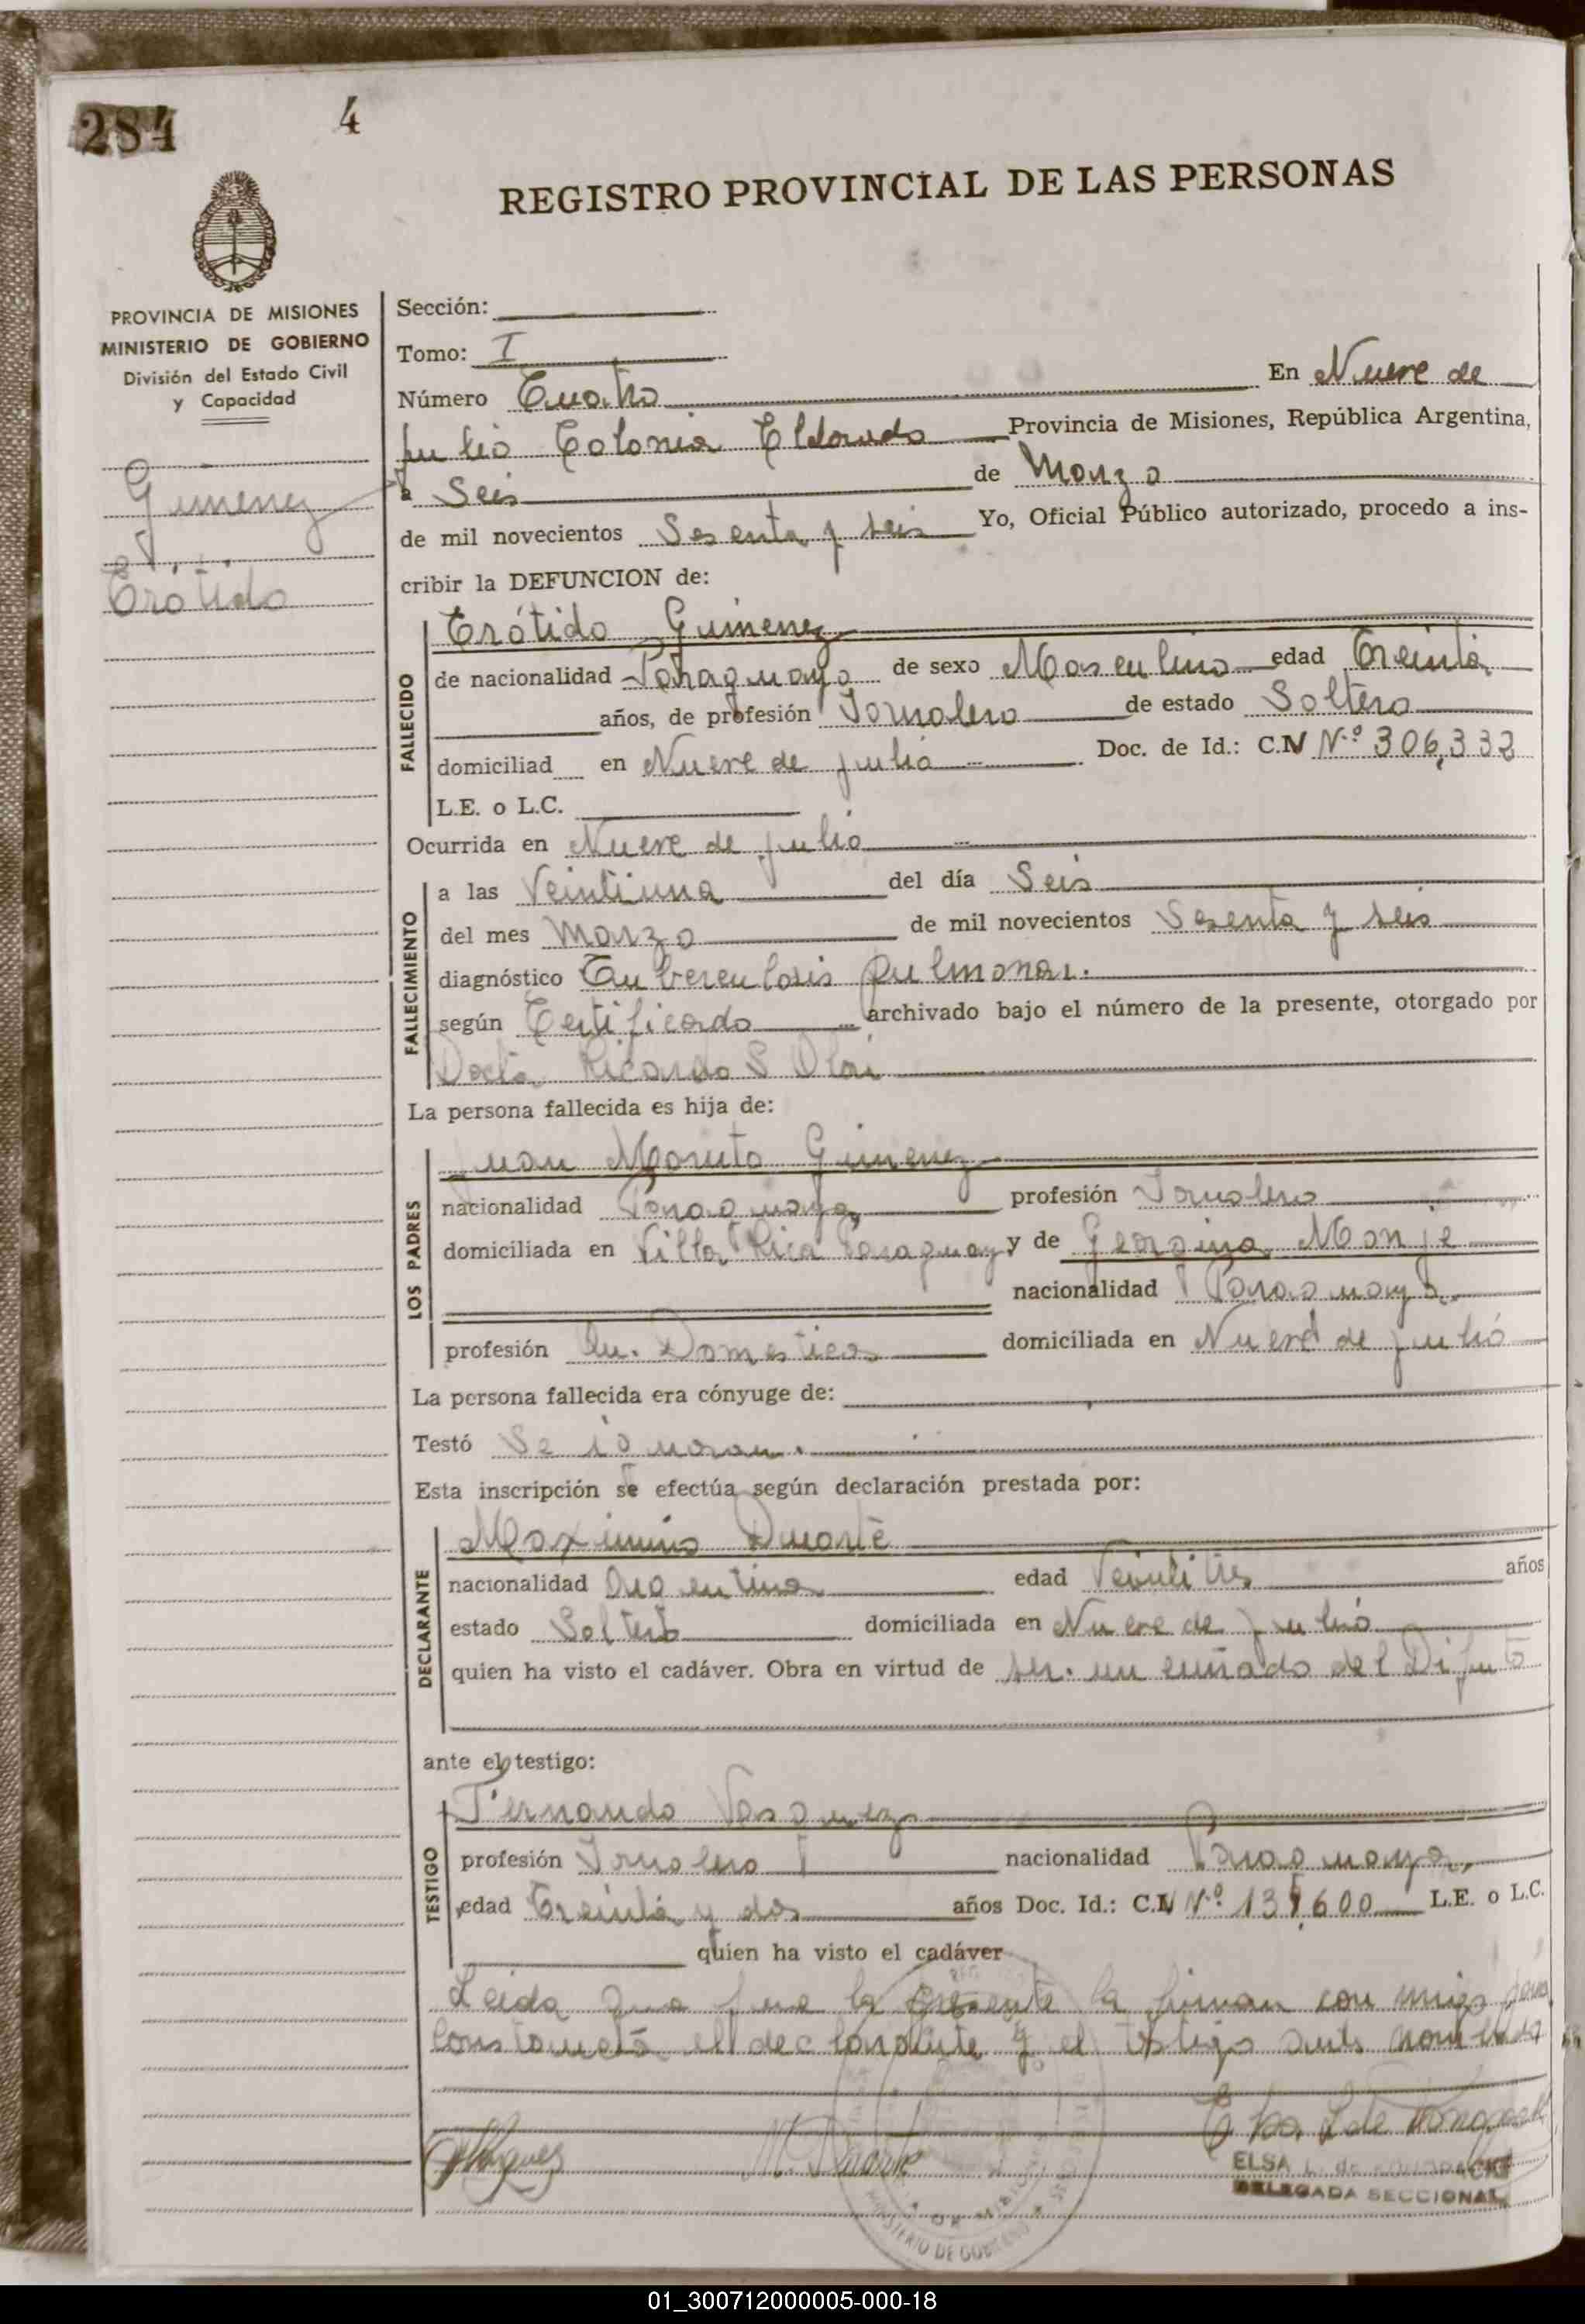 284
4
REGISTRO PROVINCIAL DE LAS PERSONAS
PROVINCIA DE MISIONES
MINISTERIO DE GOBIERNO
División del Estado Civil
y Capacidad
Gimenez
Erótido
Sección:
Tomo: I
Número Cuatro En Nueve de
Julio Colonia Eldorado Provincia de Misiones, República Argentina,
a Seis de Marzo
de mil novecientos Sesenta y seis Yo, Oficial Público autorizado, procedo a ins-
cribir la DEFUNCION de:
FALLECIDO
Erótido Gimenez
de nacionalidad Paraguaya de sexo Masculino edad Treinta
años, de profesión Jornalero de estado Soltero
domiciliad en Nueve de julio Doc. de Id.: C.N Nº 306,332
L.E. o L.C.
Ocurrida en Nueve de julio
FALLECIMIENTO
a las Veintiuna del día Seis
del mes Marzo de mil novecientos Sesenta y seis
diagnóstico Tuberculosis pulmonar.
según Certificado archivado bajo el número de la presente, otorgado por
Doctor Ricardo S
La persona fallecida es hija de:
LOS PADRES
Juan Gimenez
nacionalidad Paraguaya profesión Jornalero
domiciliada en Villa Rica Paraguay y de Georgina Monje
nacionalidad Paraguaya
profesión Domestico domiciliada en Nueve de julio
La persona fallecida era cónyuge de:
Testó Se ignoran.
Esta inscripción se efectúa según declaración prestada por:
DECLARANTE
Maximino Duarte
nacionalidad Argentina edad Veintitres años
estado Soltero domiciliada en Nueve de julio
quien ha visto el cadáver. Obra en virtud de ser. un cuñado del Difunto
ante el testigo:
TESTIGO
Fernando Vasquez
profesión Jornalero nacionalidad Paraguaya,
edad Treinta y dos años Doc. Id.: C.N Nº 600 L.E. o L.C.
quien ha visto el cadáver
Leida que fue la presente la firman con migo para
constancia el declarante y el testigo ante nombrado
Vasquez M. Duarte Elsa L de
ELSA L. de
DELEGADA SECCIONAL
MINISTERIO DE GOBIERNO
01_300712000005-000-18